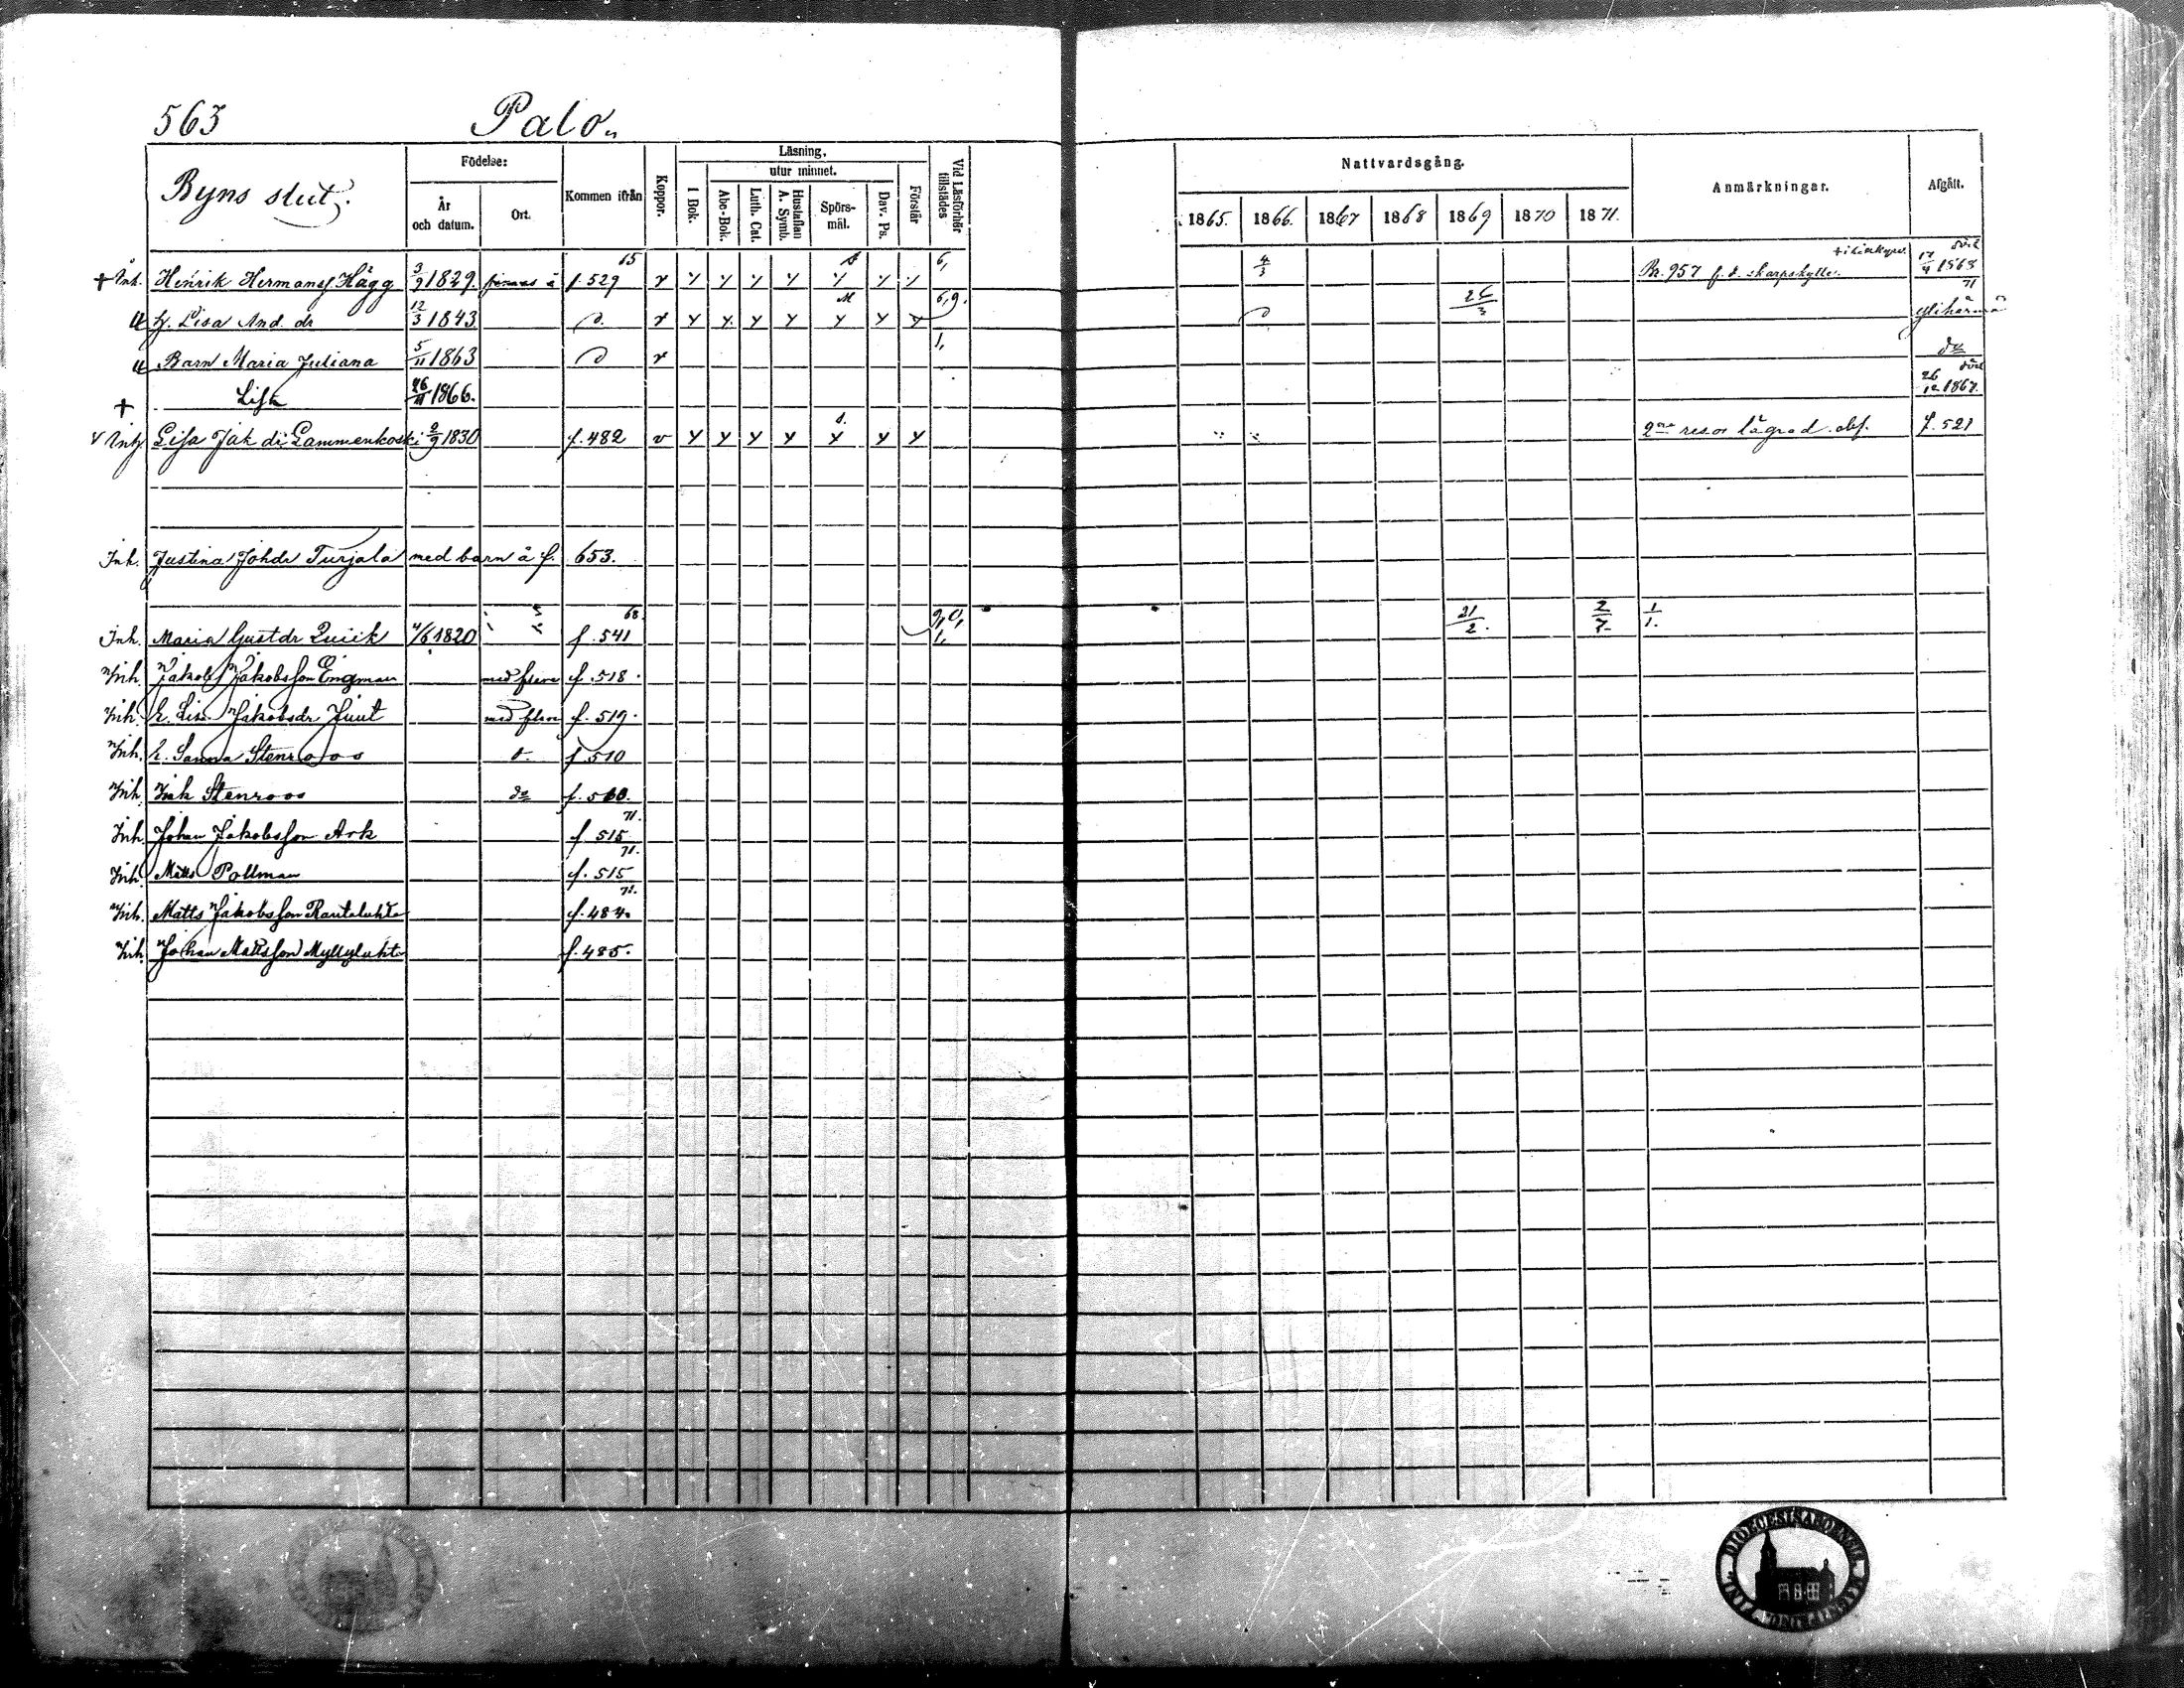 563 Palo
Byns slut.
Födelse:
År och datum.
Ort.
Kommen ifrån
Koppor.
Läsning,
utur minnet.
I Bok.
Abc-Bok.
Luth. Cat.
Hustaflan A. Symb.
Spörs-mål.
Dav. Ps.
Förstår
Vid Läsförhör tillstädes
Nattvardsgång.
1865. 1866. 1867 1868 1869 1870 1871.
Anmärkningar.
Afgått.
+ Inh. Henrik Hermansf Hägg 3/9 1829. finnas å f. 529 15 6, 4/3 Br. 957 f. d. skarpskytte. död 17/4 1868
hj. Lisa And. dr 12/3 1843 d. M 6,9. 26/3 71 Ylihärmä
Barn Maria Juliana 5/11 1863 1, do
+ Lisa 26/11 1866. död 26/12 1867.
v Inh Lisa Jak dr Lammenkoski 2/9 1830 f. 482 2ne resor lägrad. abs. f. 521
Inh. Justina Johdr Turjala med barn å f. 653.
Inh. Maria Gustdr Quick 4/6 1820 68. f. 541 9,0, 1, 21/2. 2/7. 1/1.
Inh. Jakob Jakobsson Engman med flere f. 518.
Inh. E. Lisa Jakobsdr Juut med flere f. 519.
Inh. E. Sanna Stenroos d. f 510
Inh. Isak Stenroos do f. 560.
Inh. Johan Jakobsson Ark 71. f. 515
Inh. Matts Pollman 71. f. 515
Inh. Matts Jakobsson Rautaluhta 71. f. 484.
Inh. Johan Mattsson Myllyluhta f. 485.